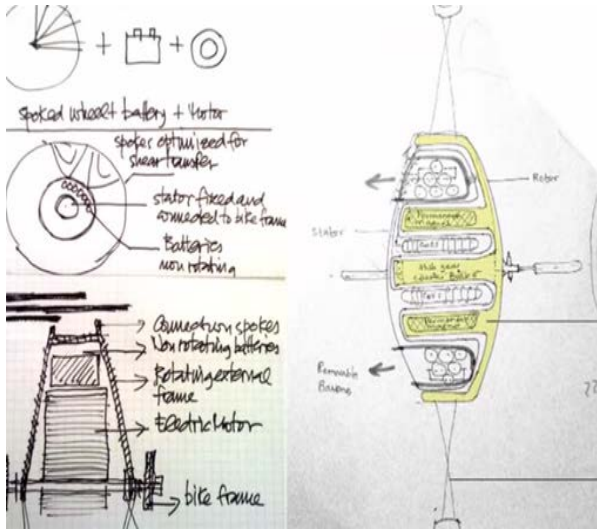 spoked wheel + battery + motor
spokes optimized for
shear transfer
stator fixed and
connected to bike frame
Batteries
non rotating
Connection spokes
Non rotating batteries
Rotating external
frame
Electric Motor
bike frame
Rotor
Stator
Permanent
magnet
Coils
Hub gear
Coils
Permanent
magnet
Removable